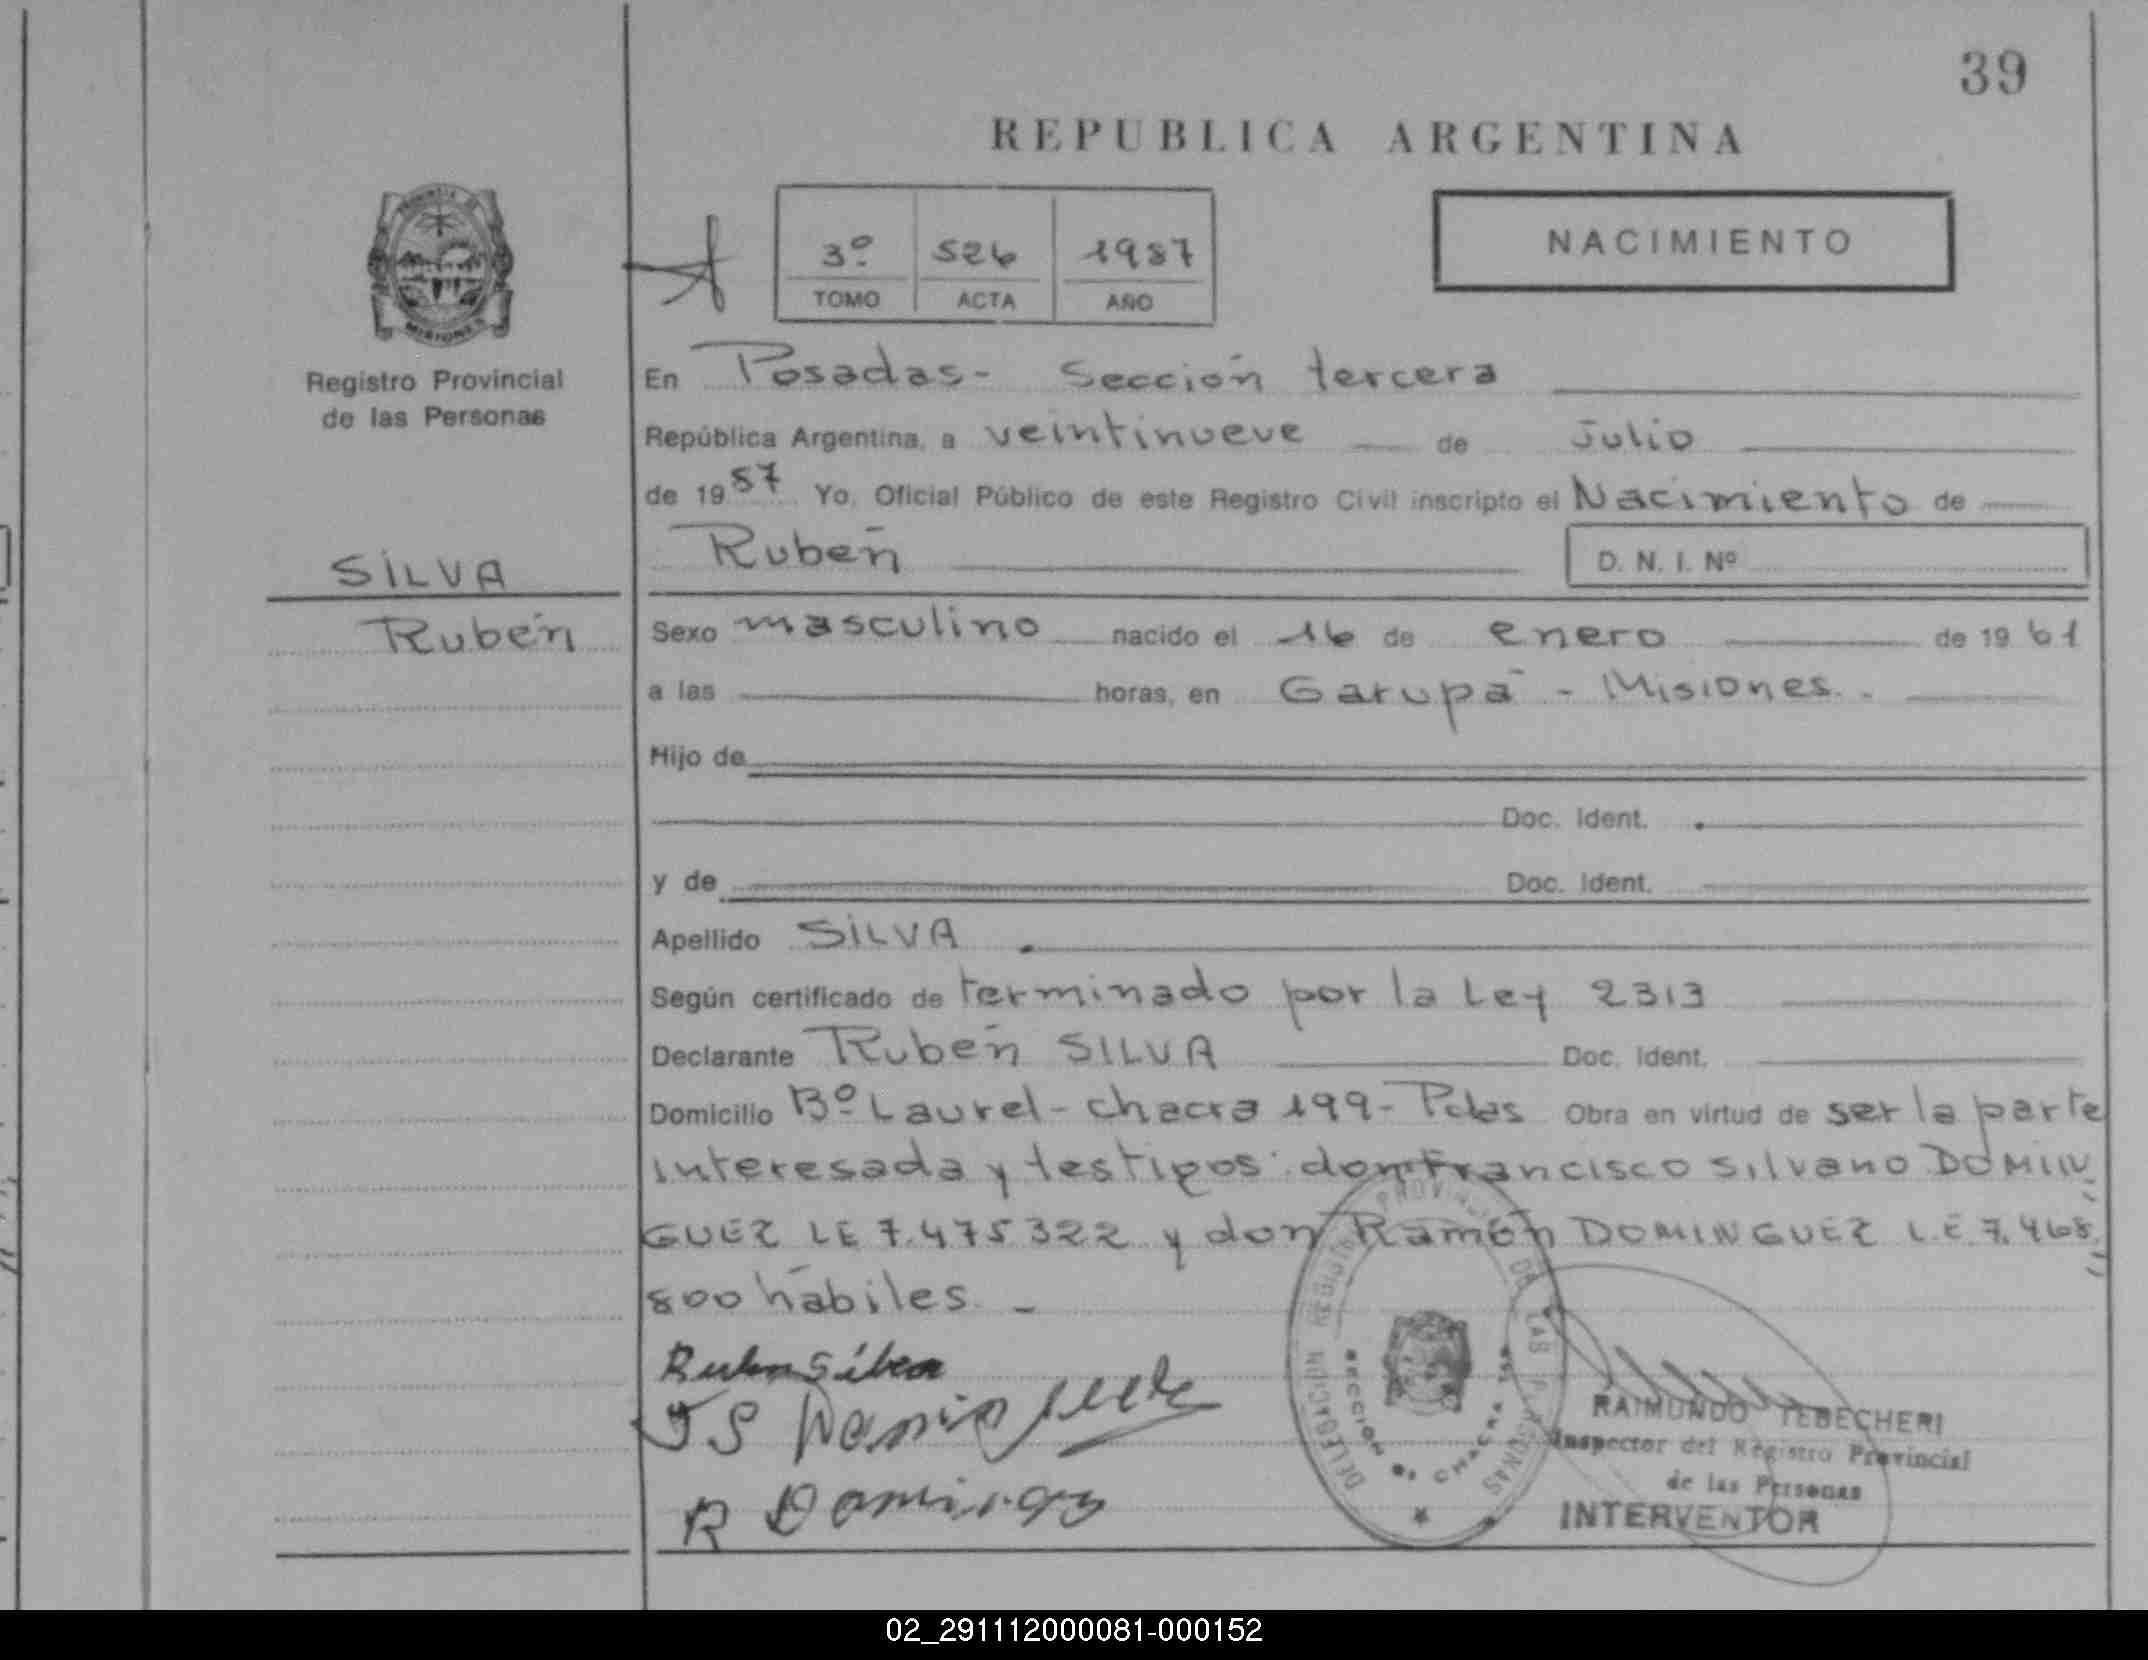 39
REPUBLICA ARGENTINA
PROVINCIA DE
MISIONES
Registro Provincial
de las Personas
3º 526 1987
TOMO ACTA AÑO
NACIMIENTO
En Posadas - Sección tercera
República Argentina, a veintinueve de Julio
de 1987 Yo, Oficial Público de este Registro Civil inscripto el Nacimiento de
Rubén D. N. I. Nº
SILVA
Rubén
Sexo masculino nacido el 16 de enero de 1961
a las horas, en Garupá - Misiones.-
Hijo de
Doc. Ident.
y de Doc. Ident.
Apellido SILVA
Según certificado de terminado por la Ley 2313
Declarante Rubén SILVA Doc. Ident.
Domicilio Bº Laurel - chacra 199 - Pdas Obra en virtud de ser la parte
interesada y testigos: don Francisco Silvano DOMIN
GUEZ LE 7.475322 y don Ramón DOMINGUEZ L.E 7.468.
800 hábiles. -
Ruben Silva
R Doming
DELEGACION REGISTRO PROVINCIAL DE LAS PERSONAS
SECCION CHACRA
RAIMUNDO TEBECHERI
Inspector del Registro Provincial
de las Personas
INTERVENTOR
02_291112000081-000152